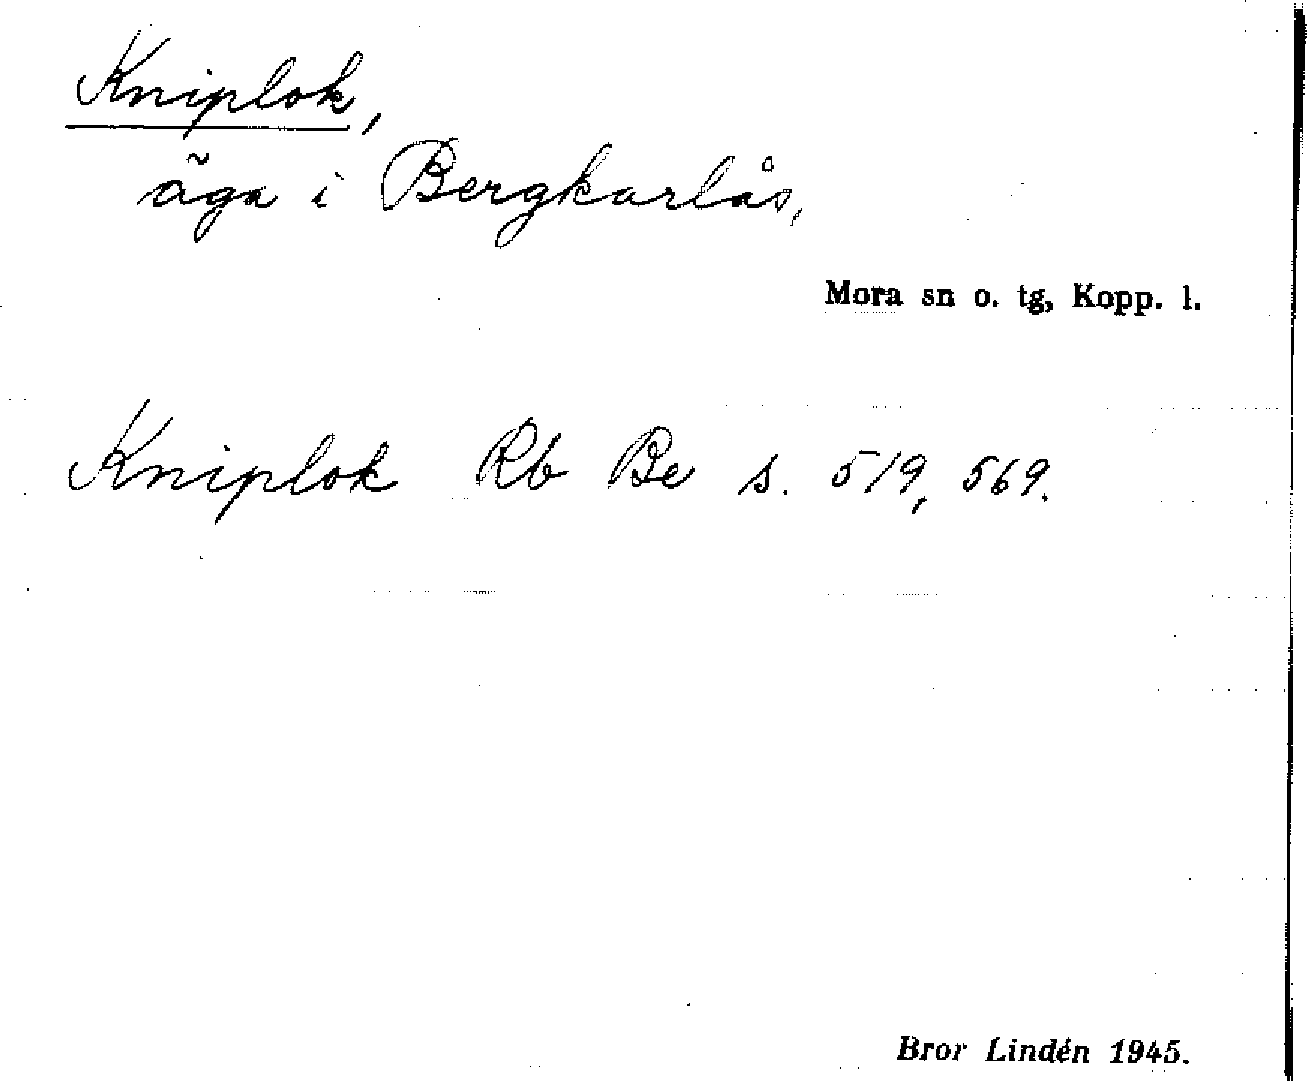 Kniplok,
äga i Bergkarlås,
Mora sn o. tg, Kopp. l.
Kniplok Rb Be s. 519, 569.
Bror Lindén 1945.